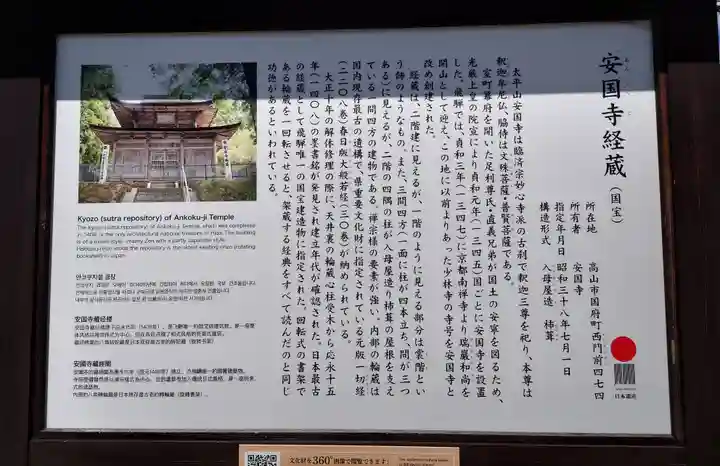 安国寺経蔵（国宝）
所在地　高山市国府町西門前四七四
所有者　安国寺
指定年月日　昭和三十八年七月一日
構造形式　入母屋造　柿葺
太平山安国寺は臨済宗妙心寺派の古刹で釈迦三尊を祀り、本尊は
釈迦牟尼仏、脇侍は文殊菩薩・普賢菩薩である。
室町幕府を開いた足利尊氏・直義兄弟が国土の安寧を図るため、
光厳上皇の院宣により貞和元年（一三四五）国ごとに安国寺を設置
した。飛騨では、貞和三年（一三四七）に京都南禅寺より瑞巌和尚を
開山として迎え、この地に以前よりあった少林寺の寺号を安国寺と
改め創建された。
経蔵は、二階建に見えるが、一階のように見える部分は裳階とい
う飾のようなもの、また、三間四方（一面に柱が四本立ち、間が三つ
あるに見えるが、二階の四隅の柱が入母屋造り柿葺の屋根を支え
ている一間四方の建物である。禅宗様の要素が強い。内部の輪蔵は
国内現存最古の遺構で、県重要文化財に指定されている元版一切経
（二二〇八巻）春日版大般若経（三〇巻）が納められている。
大正十年の解体修理の際に、天井裏の輪蔵心柱受木から応永十五
年（一四〇八）の墨書銘が発見され建立年代が確認された。日本最古
の経蔵として飛騨唯一の国宝建造物に指定された。回転式の書架で
ある輪蔵を一回転させると、架蔵する経典をすべて読んだのと同じ
功徳があるといわれている。
Kyozo (sutra repository) of Ankoku-ji Temple
The kyozo (sutra repository) of Ankoku-ji Temple, which was completed
in 1408, is the only architectural national treasure in Hida. The building
is of a mixed style: mainly Zen with a partly Japanese style.
repository is the oldest existing rinzo (rotating
bookshelf) in Japan.
안코쿠지절 경장
安国寺藏经楼
安國寺藏經閣
日本遺産
文化財を360°画像で閲覧できます！